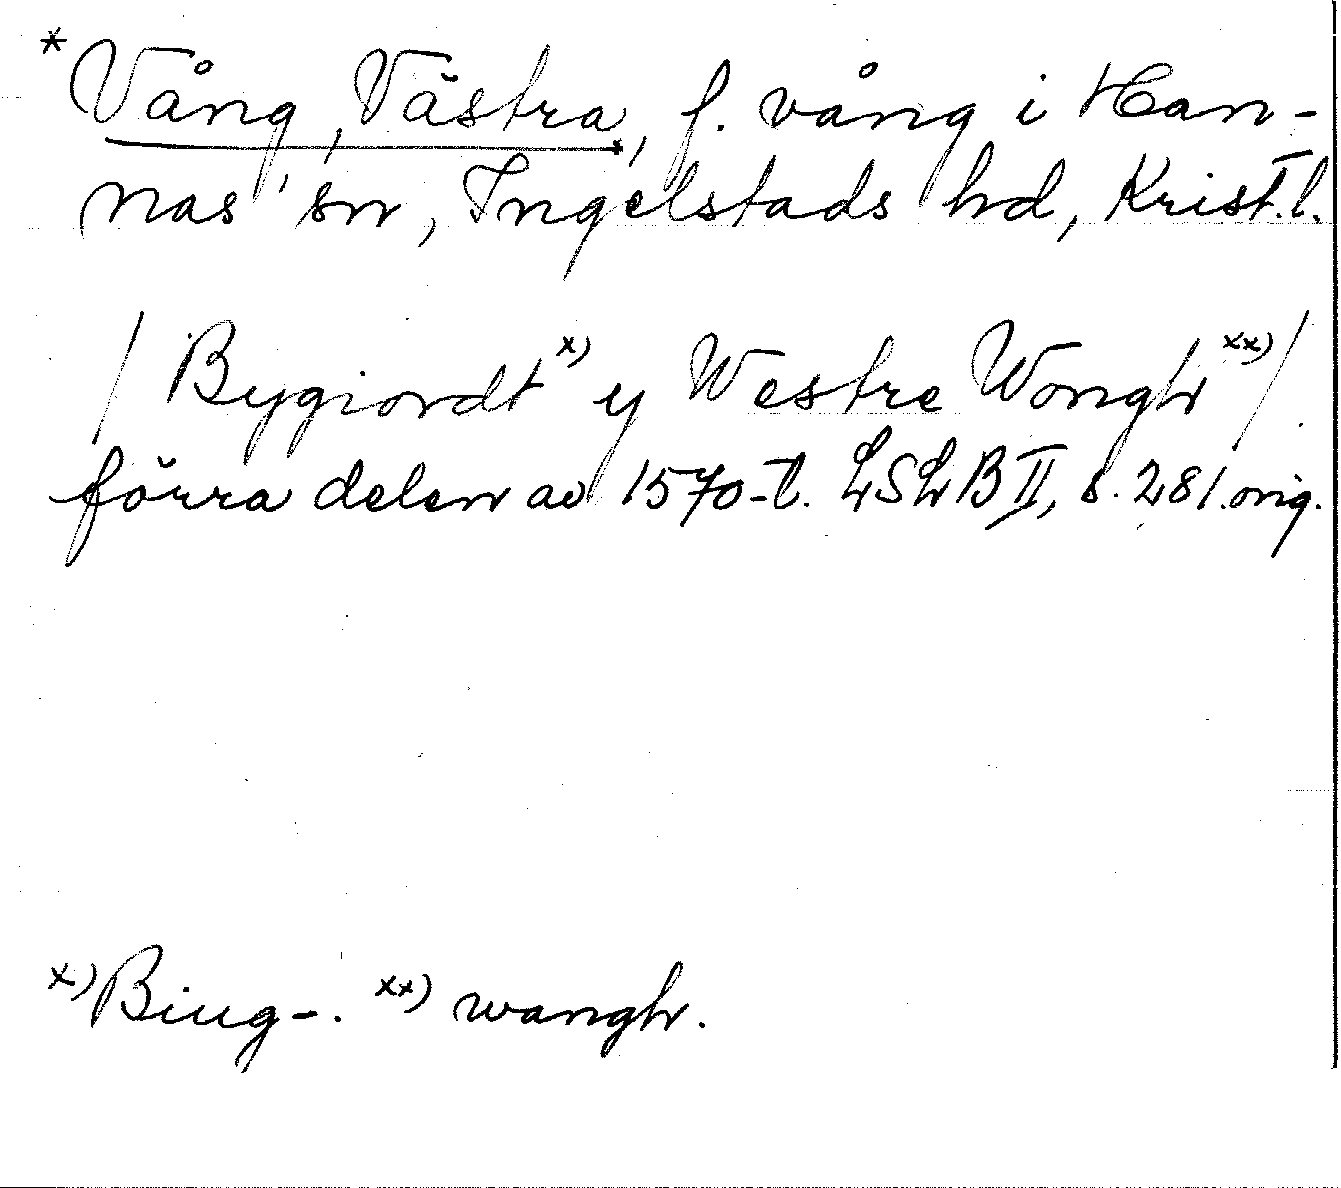 *Vång, Västra, f. vång i Han-
nas' sn, Ingelstads hd, Krist. l.
/ Bygiordt x) y Westre Wongh xx) /
förra delen av 1570-t. LSLB II, s. 281. orig.
x) Biug-. xx) wangh.